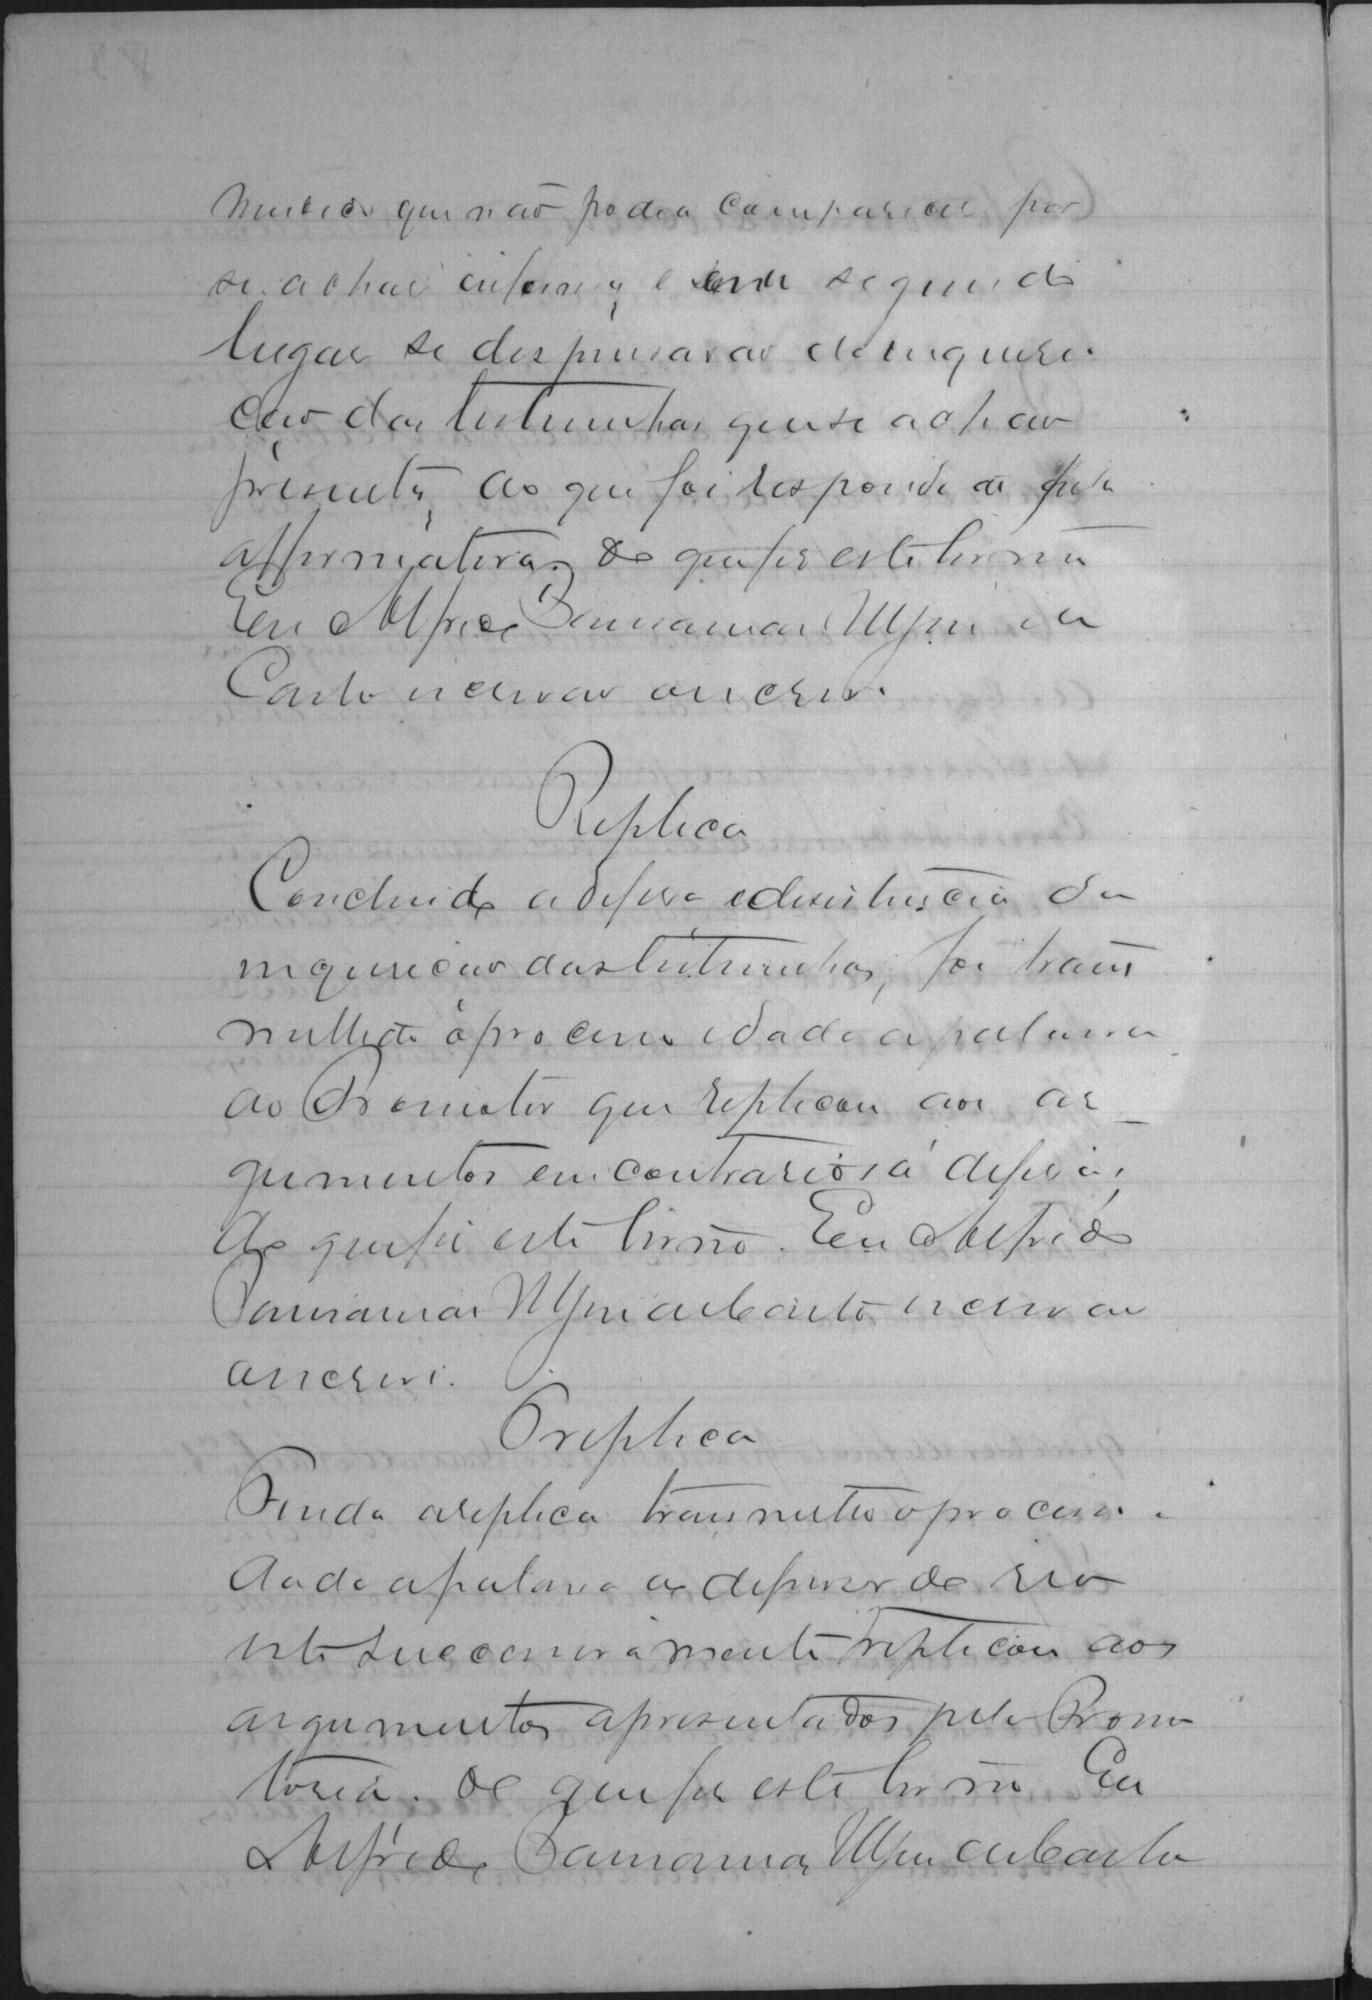 que não podia comparecer por
se achar enfermo, e em segundo
lugar se dispensavão da inquiri
ção das testemunhas que se achão
presentes, ao que foi respondido pela
affirmativa. Do que fiz este termo
Eu Alfredo
escrivão o escrevi.
Replica
Concluida a defesa e desistencia da
inquirição das testemunhas, foi trans
mettido o processo e dada a palavra
ao Promotor que replicou aos ar
gumentos em contrarios á defesa,
do que fiz este termo. Eu Alfredo
escrivão
o escrevi.
Treplica
Finda a replica transmettido o processo e
dada a palavra ao defensor do réo
este successivamente treplicou aos
argumentos apresentados pela Promo
toria. Do que fiz este termo Eu
Alfredo